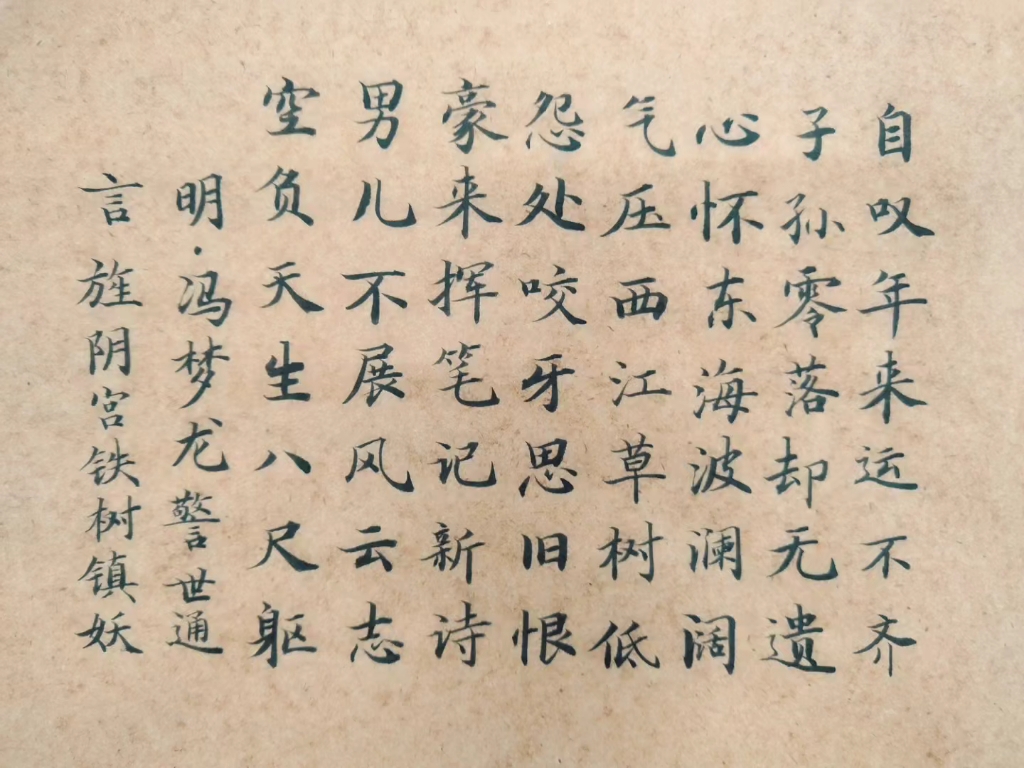 自叹年来运不齐
子孙零落却无遗
心怀东海波澜阔
气压西江草树低
怨处咬牙思旧恨
豪来挥笔记新诗
男儿不展风云志
空负天生八尺躯
明·冯梦龙警世通
言旌阴宫铁树镇妖